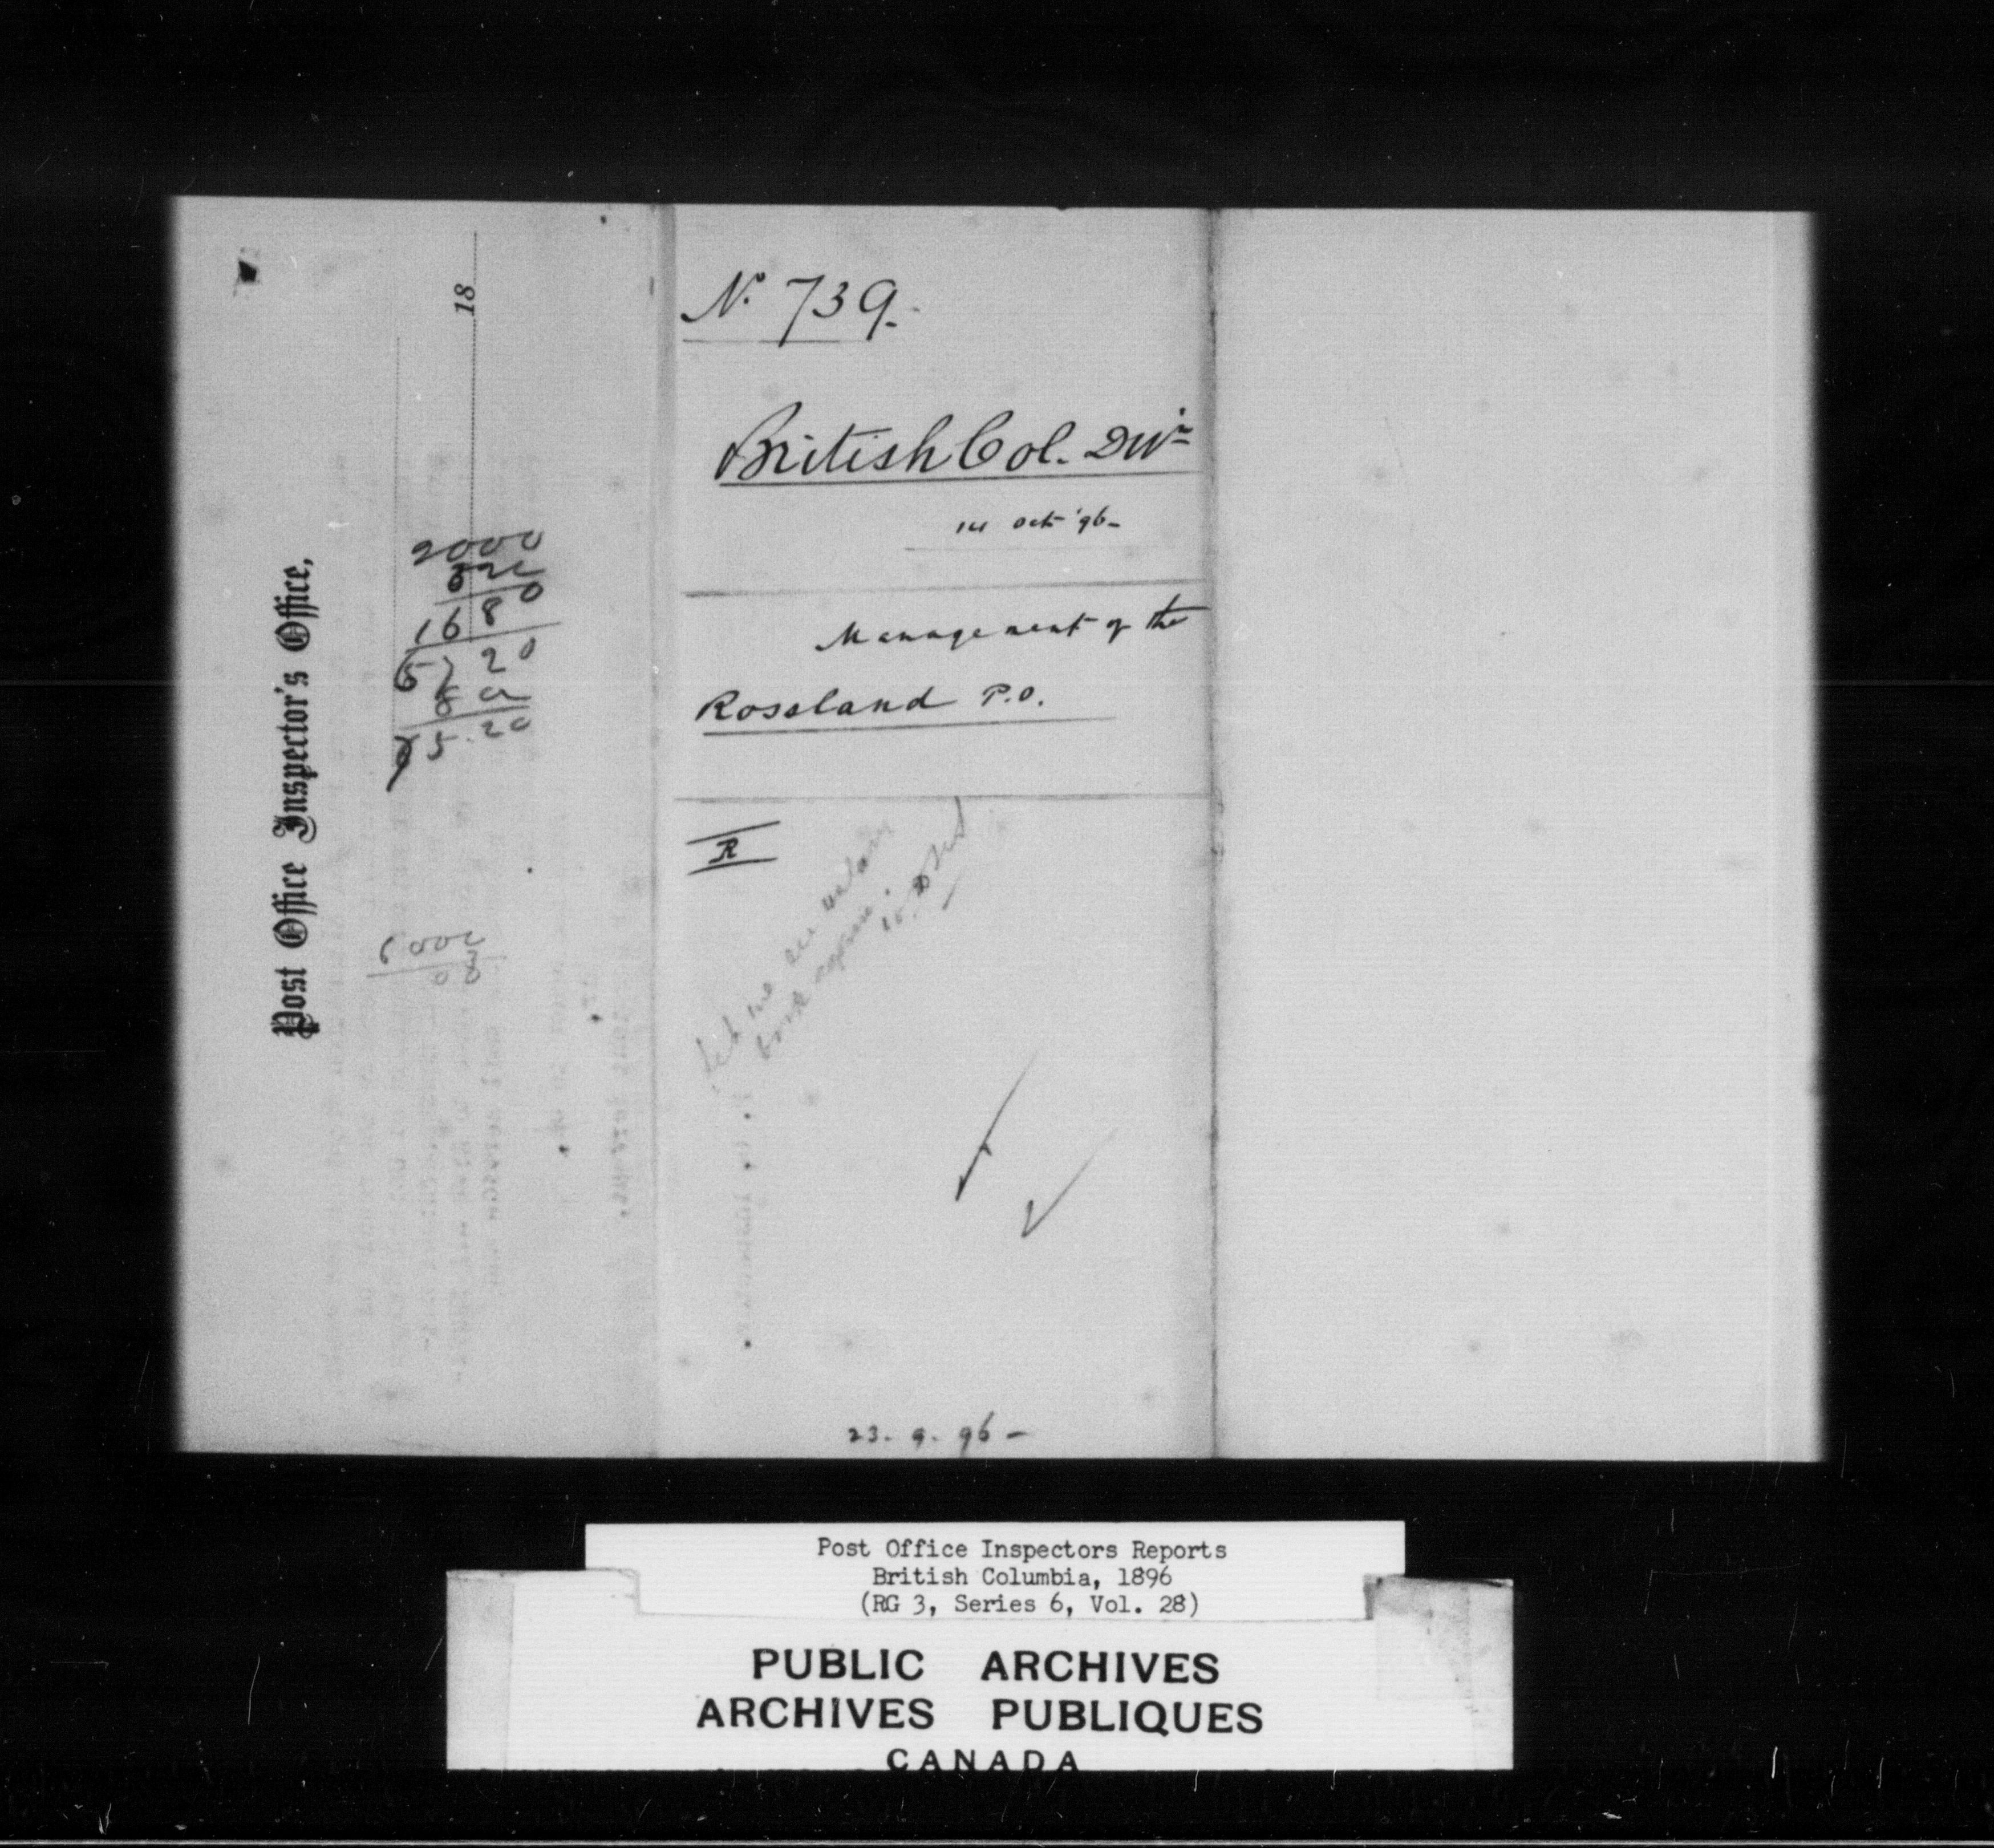 Post Office Inspector's Office,
18
2000
1680
5.20
6000
Nº 739.
British Col. Divn
14 Oct '96-
Management of the
Rossland P.O.
R
Let me see
23. 9. 96 -
Post Office Inspectors Reports
British Columbia, 1896
(RG 3, Series 6, Vol. 28)
PUBLIC ARCHIVES
ARCHIVES PUBLIQUES
CANADA